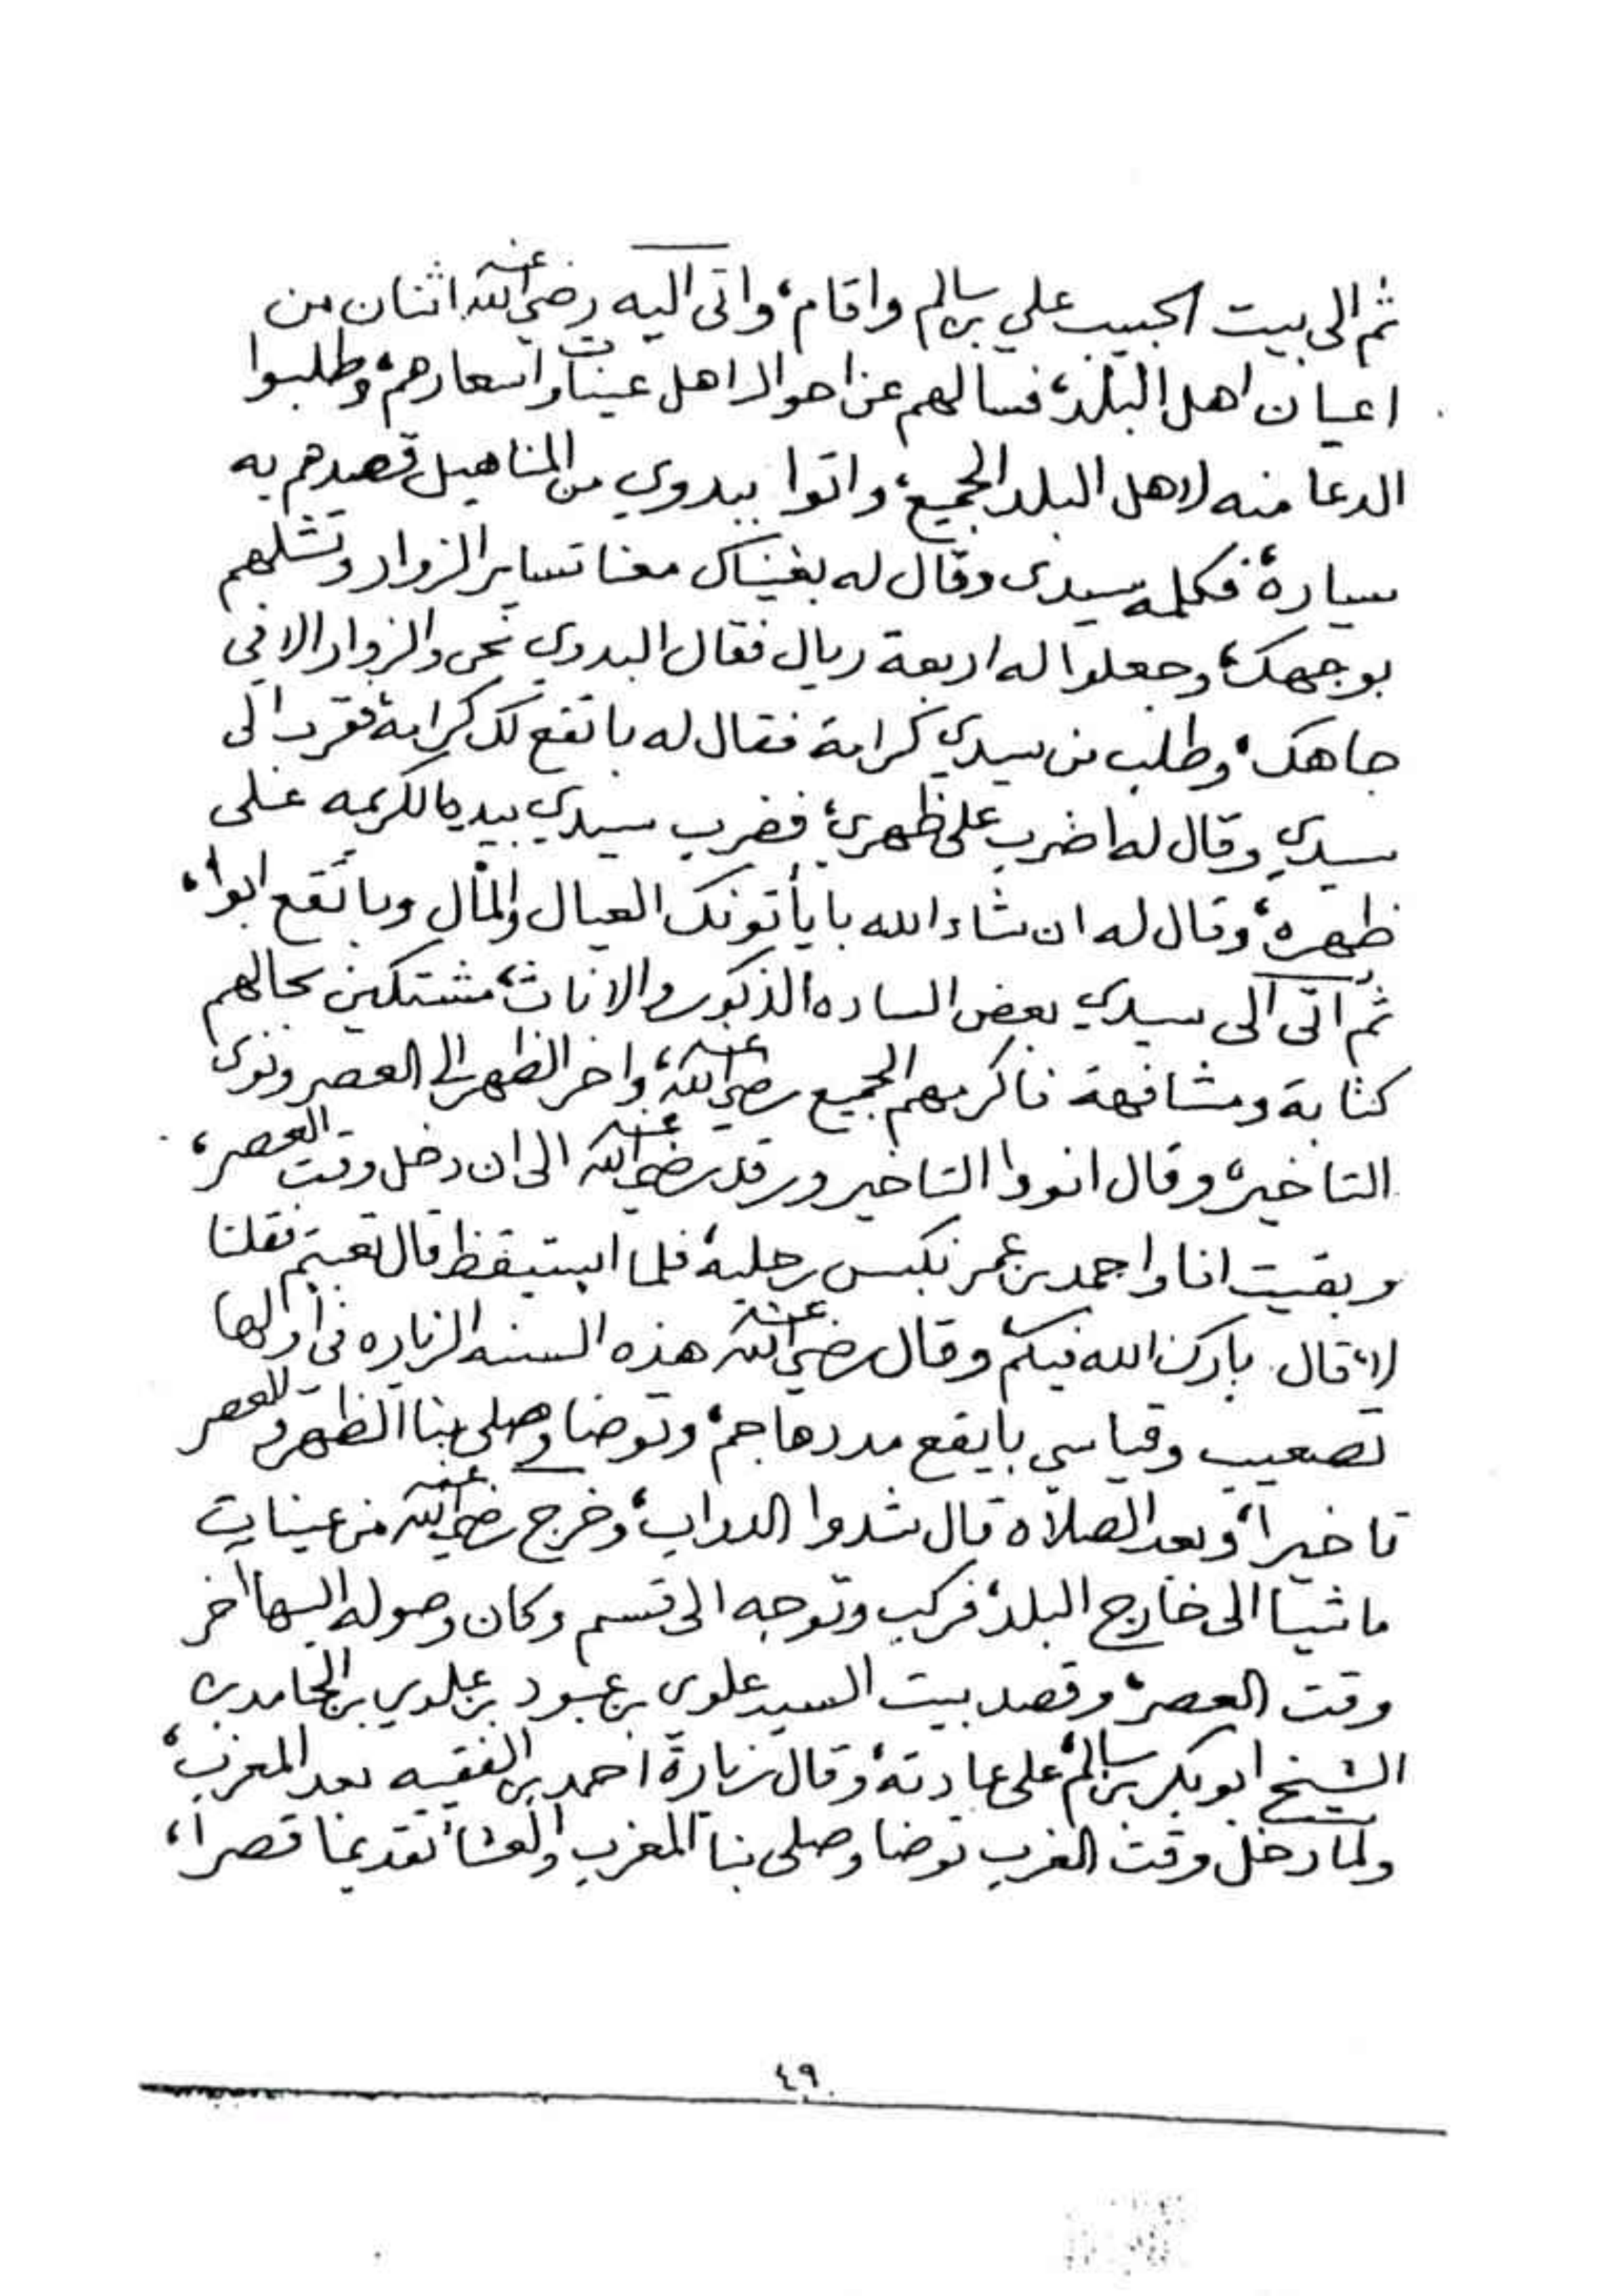 ثم الى بيت الحبيب علي بن سالم واقام، واتى اليه رضي الله عنه اثنان من
اعيان اهل البلد، فسالهم عن احوال اهل عينات واسعارهم، وطلبوا
الدعا منه لاهل البلد الجميع، واتوا ببدوي من المناهيل قصدهم به
سيارة، فكلمه سيدي وقال له بغيناك معنا تساير الزوار وتشلهم
بوجهك، وجعلوا له اربعة ريال فقال البدوي نحن والزوار الا في
جاهك، وطلب من سيدي كرامة فقال له باتقع لك كرامة فقرب الى
سيدي وقال له اضرب على ظهري، فضرب سيدي بيده الكريمه على
ظهره، وقال له ان شاء الله بايأتونك العيال والمال وباتقع ابوا،
ثم اتى الى سيدي بعض الساده الذكور والاناث، مشتكين بحالهم
كتابة ومشافهة فاكرمهم الجميع رضي الله عنه، واخر الظهر الى العصر ونوى
التاخير، وقال انووا التاخير ورقد رضي الله عنه الى ان دخل وقت العصر،
وبقيت انا واحمد بن عمر نكبس رجليه، فلما استيقظ قال تعبتم فقلنا
لا، قال بارك الله فيكم وقال رضي الله عنه هذه السنه الزياره في اولها
تصعيب وقياسي بايقع مددها جم، وتوضا وصلى بنا الظهر والعصر
تاخيرا، وبعد الصلاه قال شدوا الدواب، وخرج رضي الله عنه من عينات
ماشيا الى خارج البلد، فركب وتوجه الى قسم وكان وصوله اليها اخر
وقت العصر، وقصد بيت السيد علوي بن عبود بن علوي بن الحامد بن
الشيخ ابوبكر بن سالم، على عادته، وقال زيارة احمد بن الفقيه بعد المغرب،
ولما دخل وقت الغرب توضا وصلى بنا المغرب والعشا تقديما قصرا،
٤٩